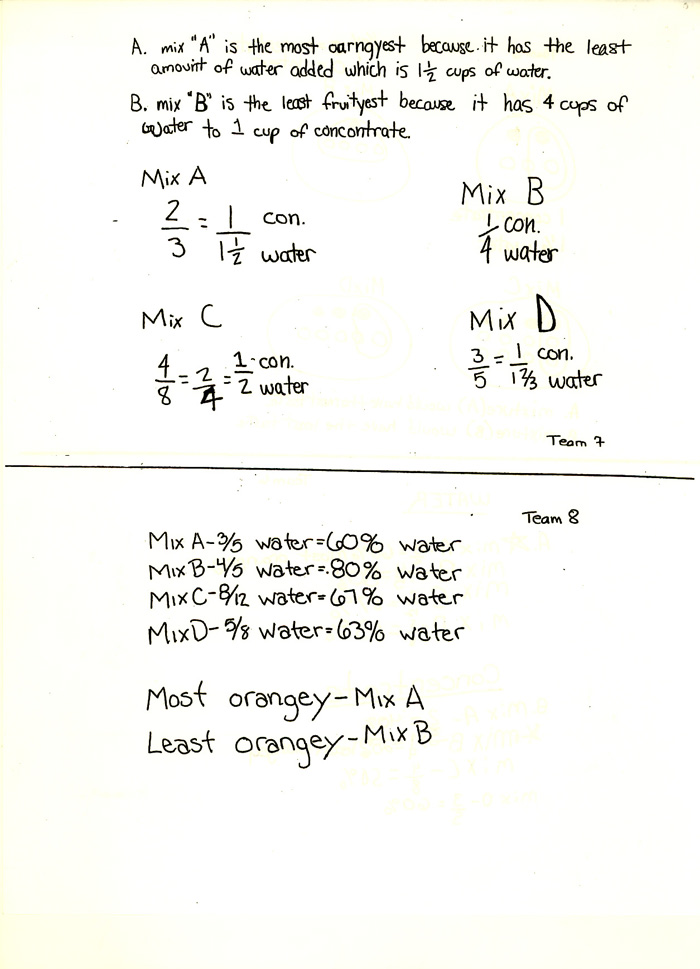 A. mix "A" is the most oarngyest because it has the least
amount of water added which is 1½ cups of water.
B. mix "B" is the least fruityest because it has 4 cups of
water to 1 cup of concontrate.
Mix A
2/3 = 1/1½ con. water
Mix B
1/4 con. water
Mix C
4/8 = 2/4 = 1/2 con. water
Mix D
3/5 = 1/1⅔ con. water
Team 7
Team 8
Mix A-3/5 water=60% water
Mix B-4/5 water=.80% water
Mix C-8/12 water=67% water
Mix D-5/8 water=63% water
Most orangey-Mix A
Least orangey-Mix B